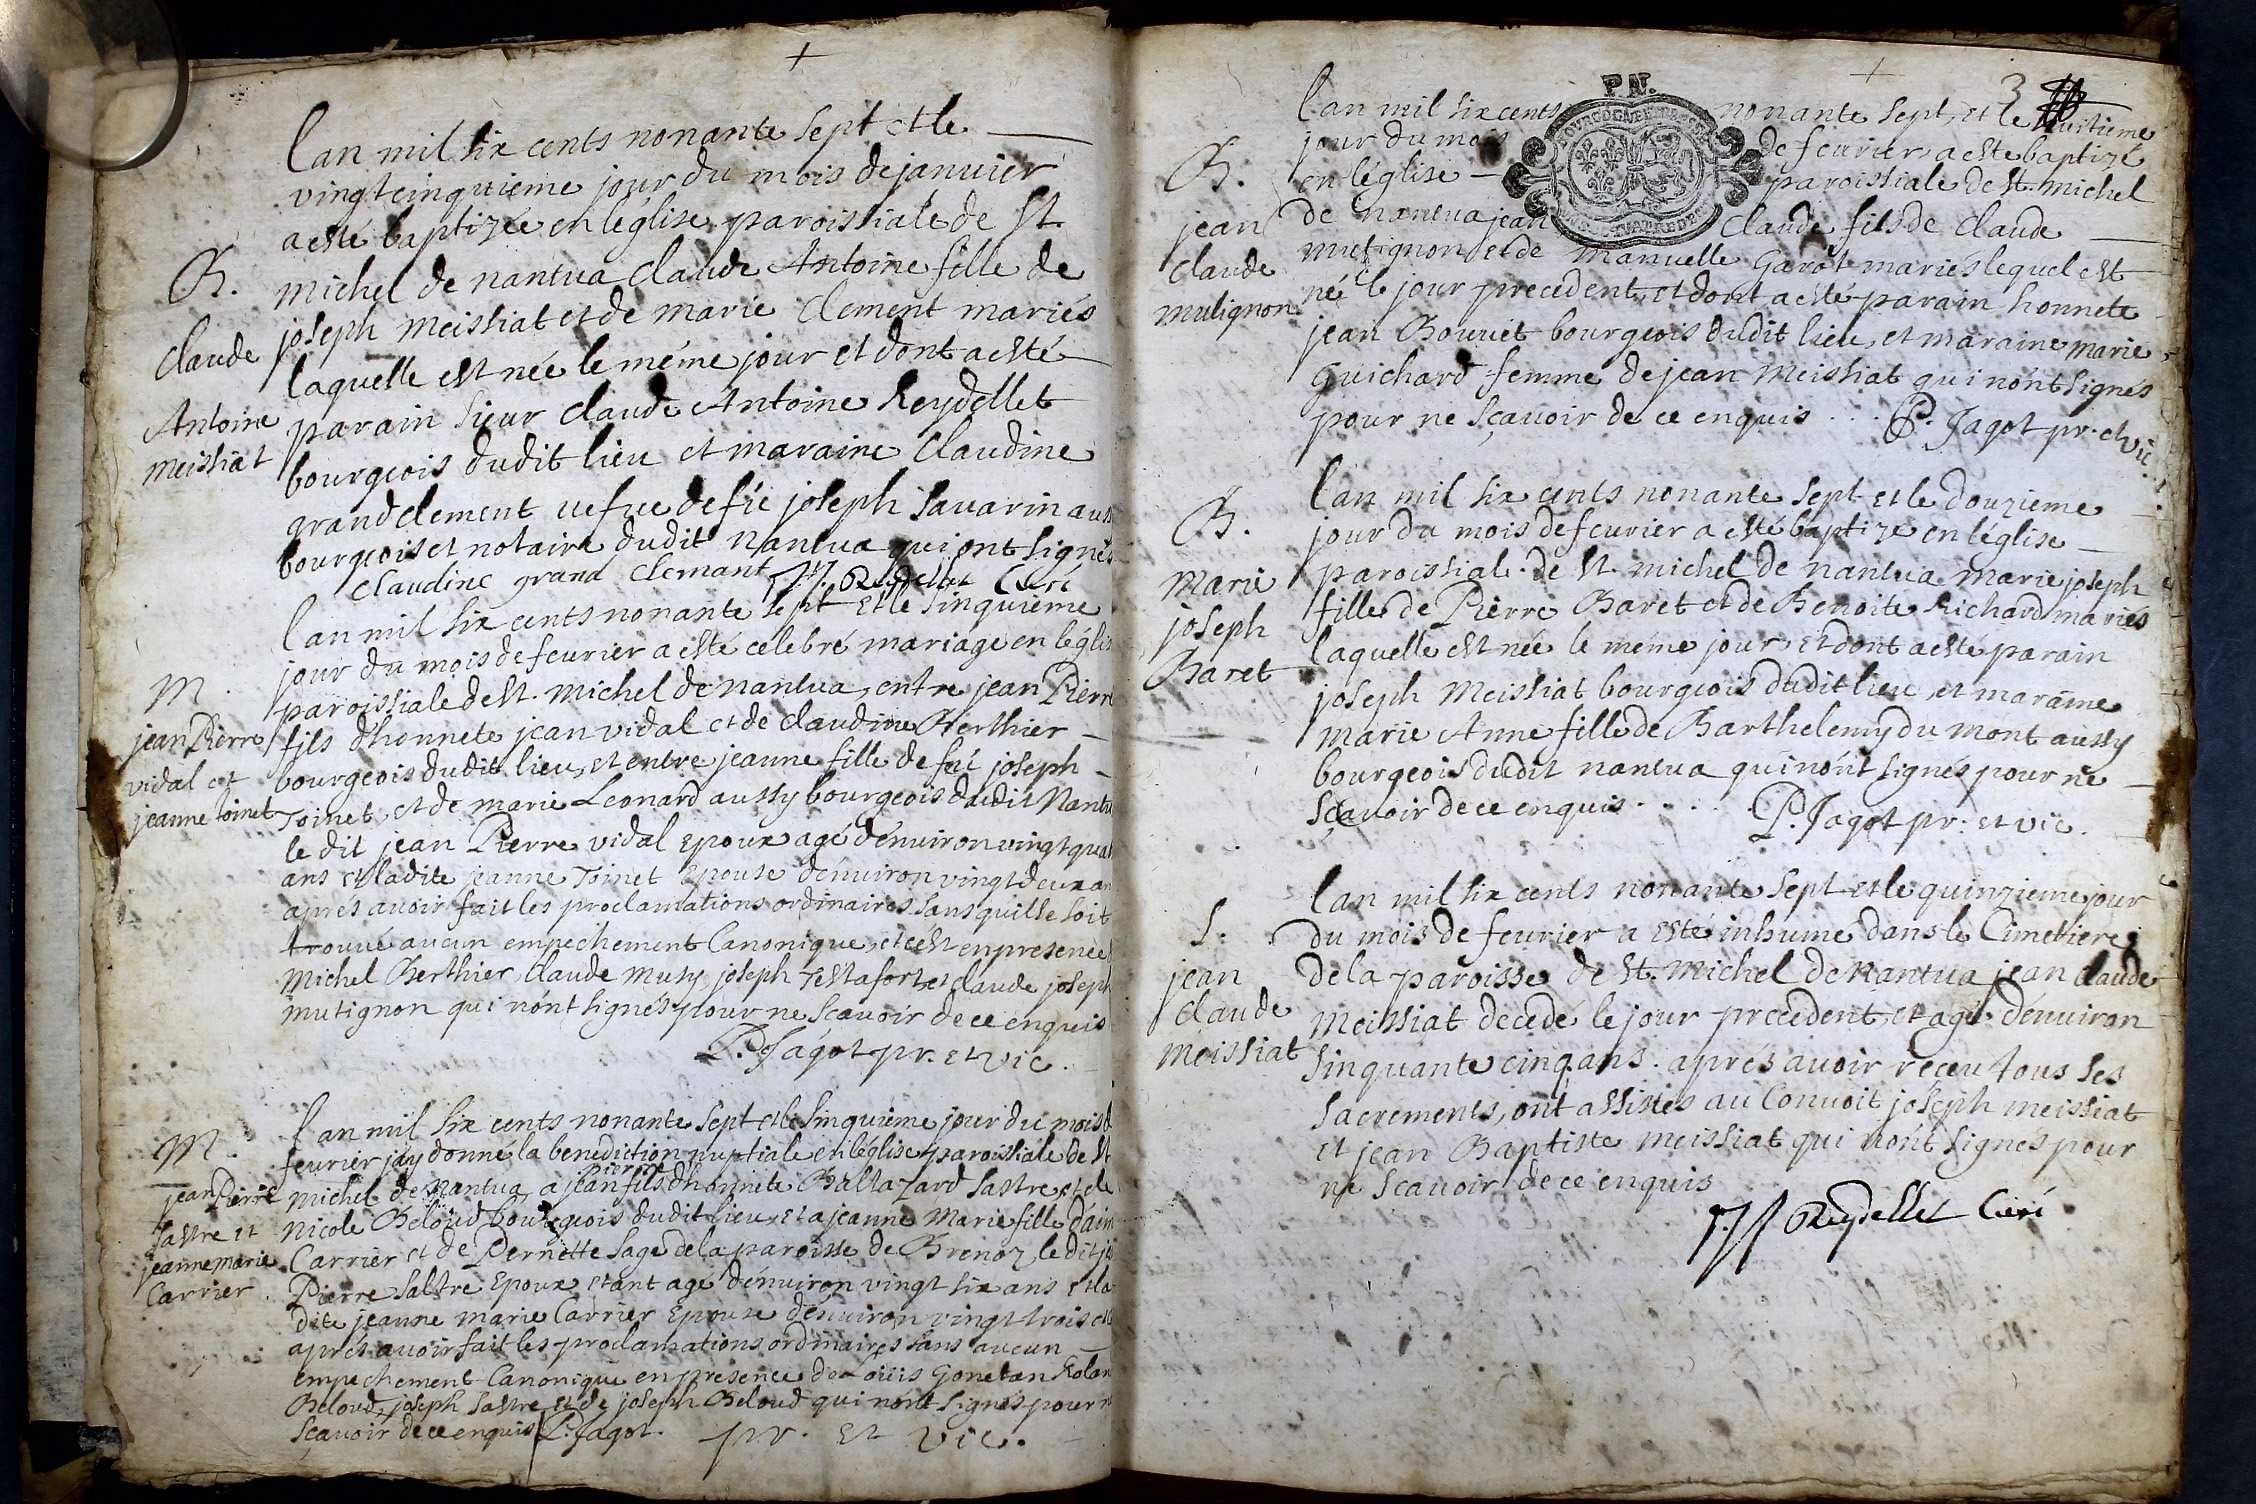 +
lan mil six cents nonante sept et le
vingtcinquieme jour du mois de janvier
a esté baptizée en leglise paroissiale de St.
B. michel de nantua claude Antoine fille de
joseph meissiat et de marie Clement mariés
Claude laquelle est née le méme jour et dont a esté
Antoine parain sieur claude Antoine Reydellet
meissiat bourgeois dudit lieu et maraine Claudine
grandclement vefve de fű joseph savarin auss
bourgeois et notaire dudit nantua qui ont signés
Claudine grand clemant Reydellet Curé
lan mil six cents nonante sept et le sinquieme
jour du mois de feurier a esté celebré mariage en léglis
M. paroissiale de St. michel de nantua, entre jean Pierre
jean Pierre fils dhonnete jean vidal et de claudine Berthier
vidal et bourgeois dudit lieu, et entre jeanne fille de feu joseph
jeanne toinet Toinet, et de marie Leonard aussy bourgeois dudit Nantu
le dit jean Pierre vidal epoux agé dénuiron vingt quat
ans et ladite jeanne Toinet Epouse dénuiron vingt deux an
aprés avoir fait les proclamations ordinaires sans quil se soit
trouvé aucun empechement Canonique, et cést en presence d
Michel Berthier, Claude muty, joseph Testafort, et claude joseph
mutignon qui nont signés pour ne scauoir de ce enquis
P. Jagot pr. et vic.
lan mil six cents nonante sept et le sinquieme jour du mois d
M. feurier jáy donné la benediction nuptiale en léglise paroissiale de St
jean Pierre michel de nantua, a jean Pierre fils dhonnete Baltazard sastre et de
sastre et Nicole Beloud bourgeois dudit lieu, et a jeanne Marie fille daim
jeanne marie Carrier et de Pernette sage de la paroisse de Brenoz le dit je
Carrier. Pierre sastre Epoux etant agé dénuiron vingt six ans et la
dite jeanne marie Carrier Epouse dénuiron vingt trois et
aprés avoir fait les proclamations ordinaires sans aucun
empechement Canonique en presence de Loüis Gonetan Rolan
Beloud, joseph sastre et de joseph Beloud qui nónt signés pour n
scauoir de ce enquis P. Jagot. pr. et vic.
+ 3
P N.
lan mil six cents nonante sept, et le huitieme
jour du mois de feurier a este baptizé
B. en léglise paroissiale de St. michel
jean de nantua jean Claude fils de Claude
Claude mutignon et de manuelle Garot mariés lequel est
mutignon né le jour precedent, et dont a esté parain honnete
jean Bouuet bourgeois dudit lieu, et maraine marie
Guichard femme de jean Meissiat qui nónt signés
pour ne sçauoir de ce enquis P. Jagot pr. et vic.
lan mil six cents nonante sept et le douzieme
B. jour du mois de feurier a esté baptize en léglise
Marie paroissiale de St. michel de nantua marie joseph
joseph fille de Pierre Baret et de Benoite Richard mariés
Baret laquelle est née le méme jour, et dont a esté parain
joseph Meissiat bourgeois dudit lieu, et maraine
marie Anne fille de Barthelemy du mont aussy
bourgeois dudit nantua qui nónt signés pour ne
sçauoir de ce enquis. P. Jagot pr. et vic.
lan mil six cents nonante sept et le quinzieme jour
S. du mois de feurier a esté inhumé dans le Cimetiere
jean de la paroisse de St. Michel de Nantua jean claude
Claude Meissiat decedé le jour precedent, et agé dénuiron
meissiat sinquante cinq ans. aprés auoir receu tous ses
sacrements, ont assistés au Conuoit joseph meissiat
et jean Baptiste meissiat qui nónt signés pour
ne scauoir de ce enquis
Reydellet Curé